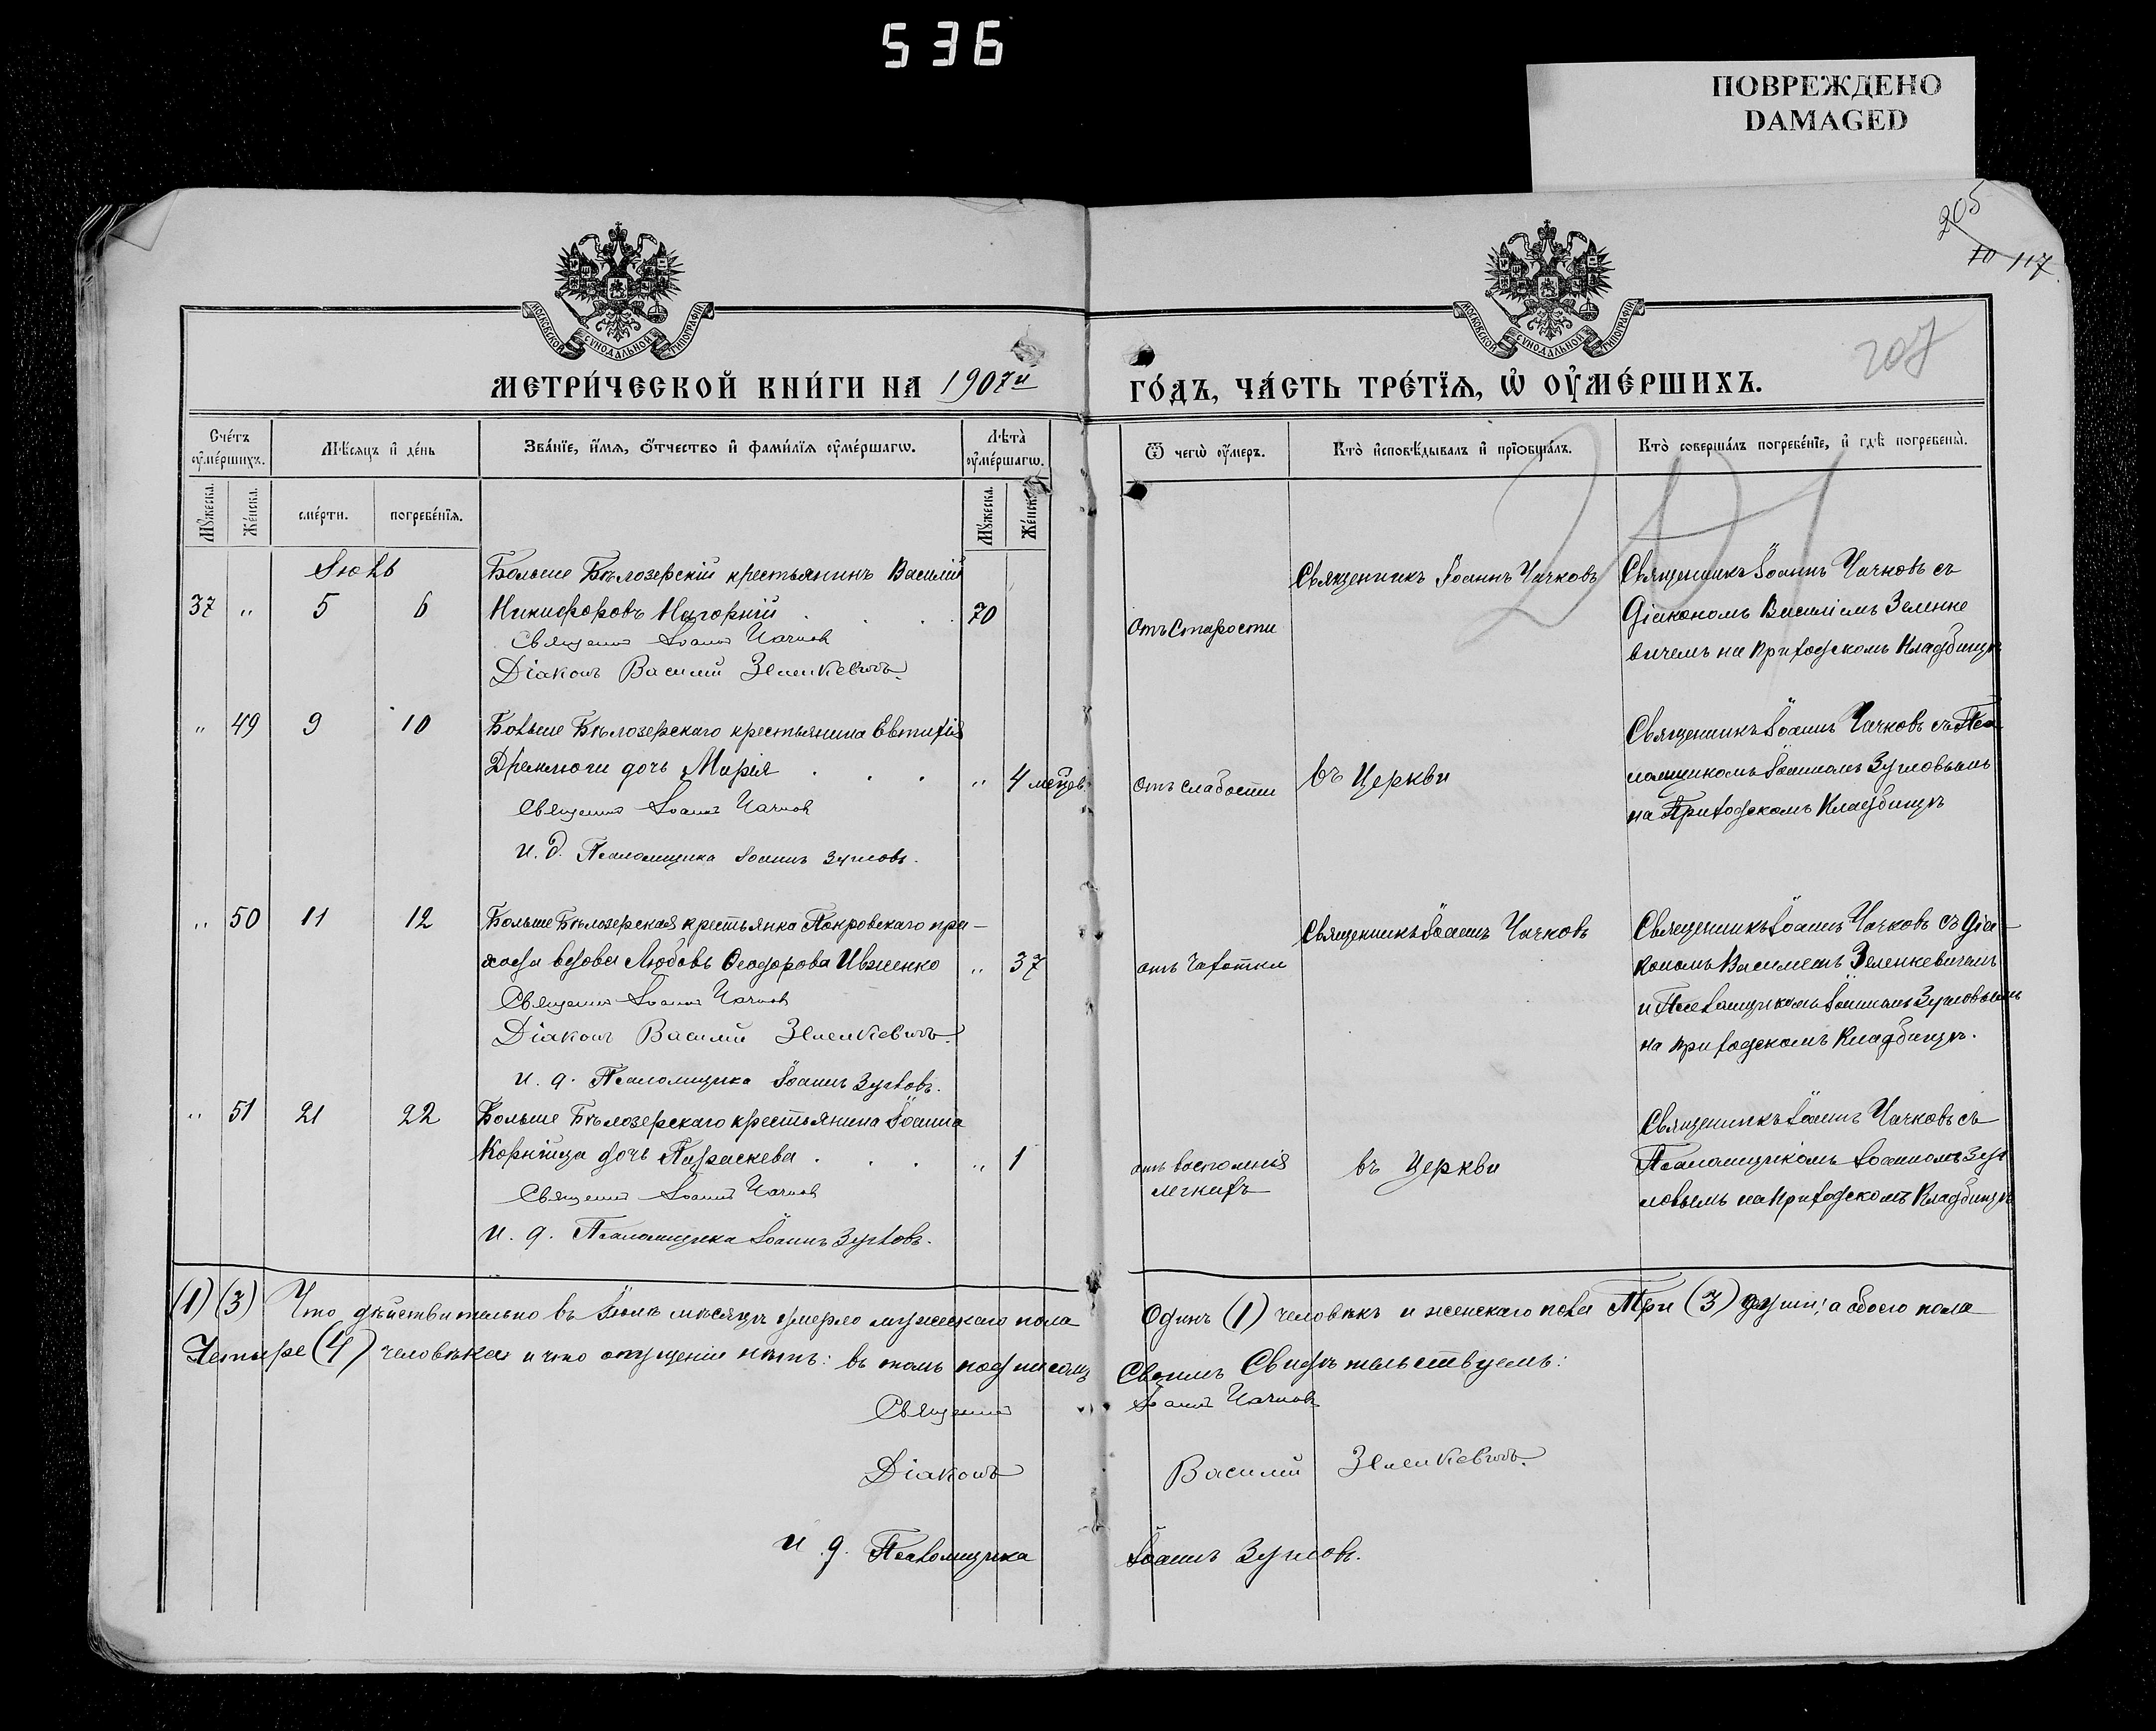 536
ПОВРЕЖДЕНО
DAMAGED
205
10 117
207
МОСКОВСКОЙ СѴНОДАЛЬНОЙ ТИПОГРАФІИ
МОСКОВСКОЙ СѴНОДАЛЬНОЙ ТИПОГРАФІИ
МЕТРИ́ЧЕСКОЙ КНИ́ГИ НА 1907й ГО́ДЪ, ЧА́СТЬ ТРЕ́ТЇѦ, Ѽ ОУ҆МЕ́РШИХЪ.
Сче́тъ оу҆ме́ршихъ.
Мѣ́сяцъ и҆ де́нь
Зва́нїе, и҆́мя, ѻ҆́тчество и҆ фами́лїя оу҆ме́ршагѡ.
Лѣ́та оу҆ме́ршагѡ.
Ѿ чегѡ̀ оу҆́меръ.
Кто̀ и҆сповѣ́дывалъ и҆ прїѡбща́лъ.
Кто̀ соверша́лъ погребе́нїе, и҆ гдѣ̀ погребены̀.
Мꙋ́жеска. Же́нска. сме́рти. погребе́нїя. Мꙋ́жеска. Же́нска.
Іюль
Больше Бѣлозерскій крестьянинъ Василій
37 " 5 6 Никифоровъ Нагорній . . . 70
Священникъ Іоаннъ Чачковъ
Діаконъ Василій Зеленкевичъ.
Отъ Старости
Священникъ Іоаннъ Чачковъ
Священникъ Іоаннъ Чачковъ съ
Діакономъ Василіемъ Зеленке
вичемъ на приходскомъ Кладбищѣ
" 49 9 10 Больше Бѣлозерскаго крестьянина Евтихія
дочь Марія . . . " 4 мѣсцев
Священникъ Іоаннъ Чачковъ
И. д. Псаломщика Іоаннъ Зугловъ.
отъ слабости
въ Церкви
Священникъ Іоаннъ Чачковъ съ Пса
ломщикомъ Іоанномъ Зугловымъ
на Приходскомъ Кладбищѣ
" 50 11 12 Больше Бѣлозерская крестьянка Покровскаго при-
хода вдова Любовь Ѳеодорова Ивженко " 37
Священникъ Іоаннъ Чачковъ
Діаконъ Василій Зеленкевичъ.
И. д. Псаломщика Іоаннъ Зугловъ.
отъ Чахотки
Священникъ Іоаннъ Чачковъ
Священникъ Іоаннъ Чачковъ съ Діа-
кономъ Василіемъ Зеленкевичемъ
и Псаломщикомъ Іоанномъ Зугловымъ
на приходскомъ Кладбищѣ.
" 51 21 22 Больше Бѣлозерскаго крестьянина Іоанна
дочь Параскева . . . " 1
Священникъ Іоаннъ Чачковъ
И. д. Псаломщика Іоаннъ Зугловъ.
отъ восполенія
легкихъ
въ Церкви
Священникъ Іоаннъ Чачковъ съ
Псаломщикомъ Іоанномъ Зуг
ловымъ на приходскомъ Кладбищѣ
(1) (3) Что дѣйствительно въ Іюлѣ мѣсяцѣ умерло мужескаго пола Одинъ (1) человѣкъ и женскаго пола Три (3) души; а обоего пола
Четыре (4) человѣка и что опущенія нѣтъ: въ томъ подписомъ Своимъ Свидѣтельствуемъ:
Священникъ Іоаннъ Чачковъ
Діаконъ Василій Зеленкевичъ.
И. д. Псаломщика Іоаннъ Зугловъ.